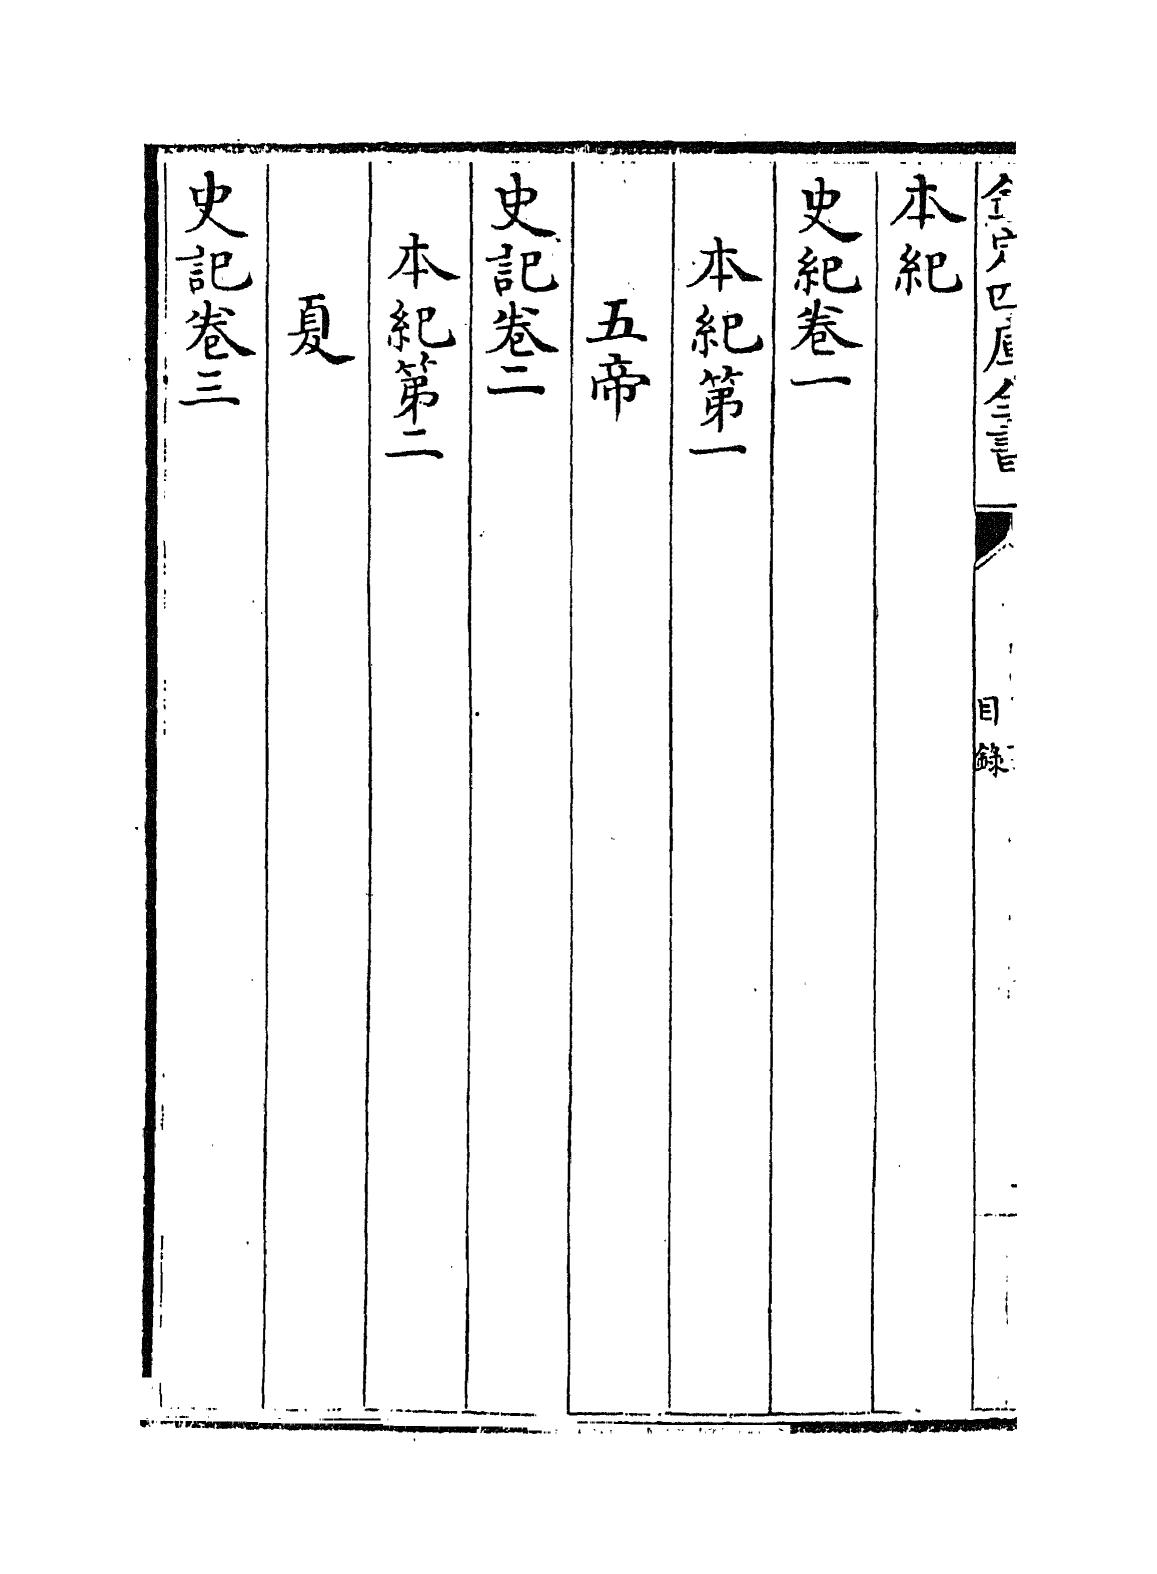 欽定四庫全書
目錄
本紀
史紀卷一
本紀第一
五帝
史記卷二
本紀第二
夏
史記卷三